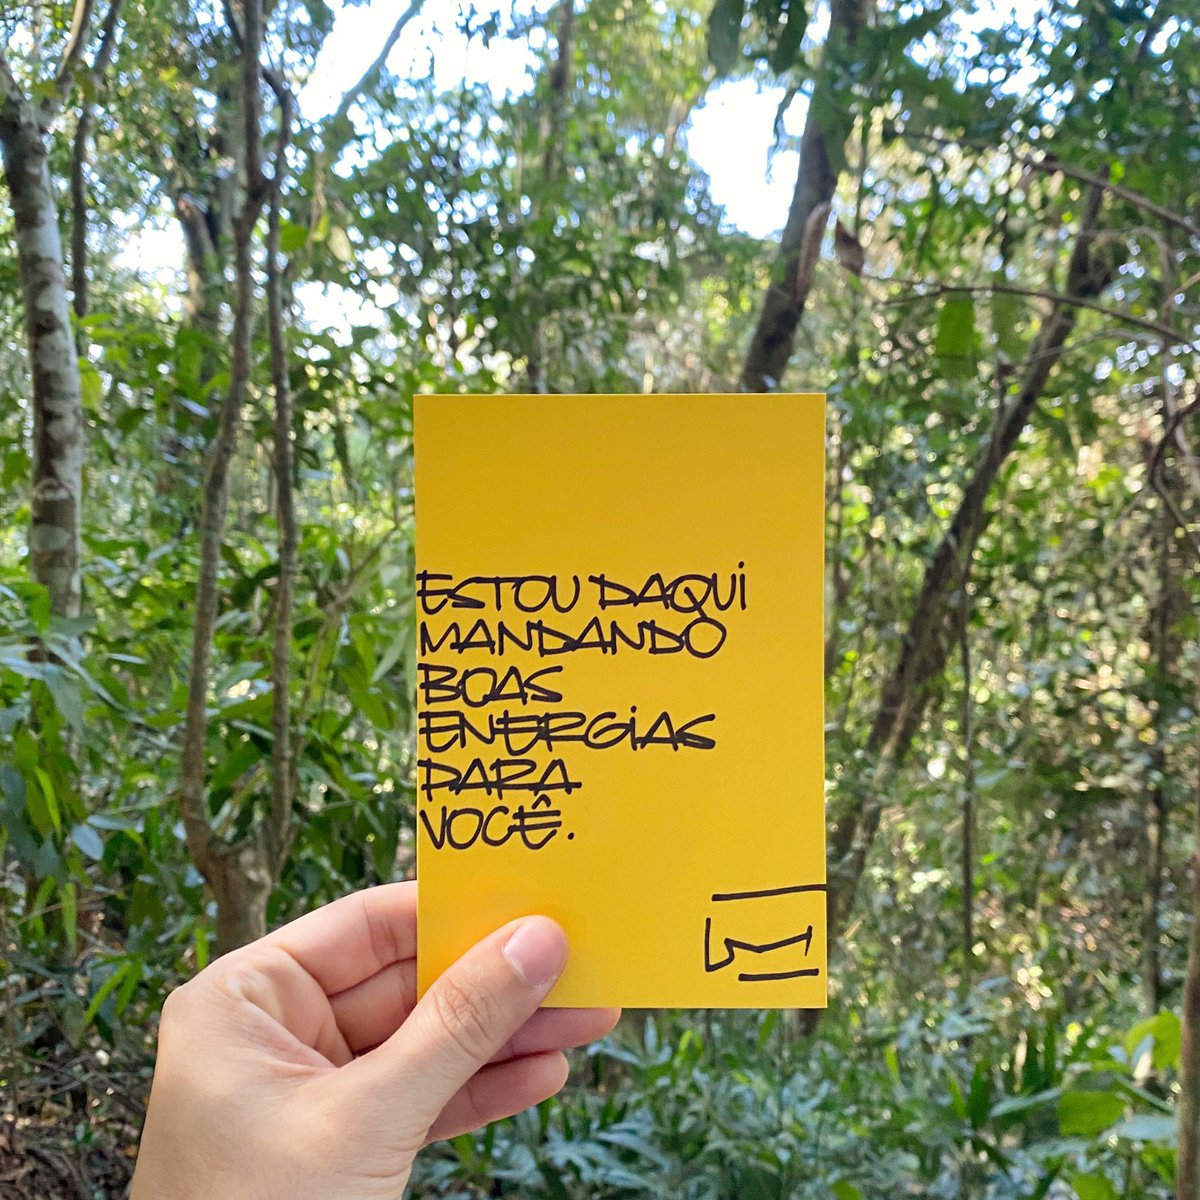 ESTOU DAQUI
MANDANDO
BOAS
ENERGIAS
PARA
VOCÊ.